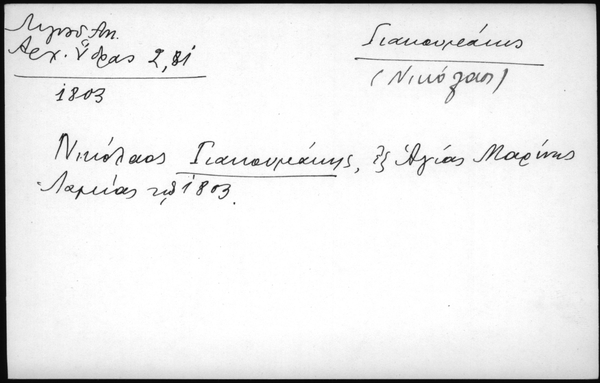 Λιγνοῦ Ἀπ.
Αρχ. Ὕδρας 2, 81
1803
Γιακουμάκης
(Νικόλαος)
Νικόλαος Γιακουμάκης, ἐξ Ἁγίας Μαρίνης
Λαμίας τῷ 1803.